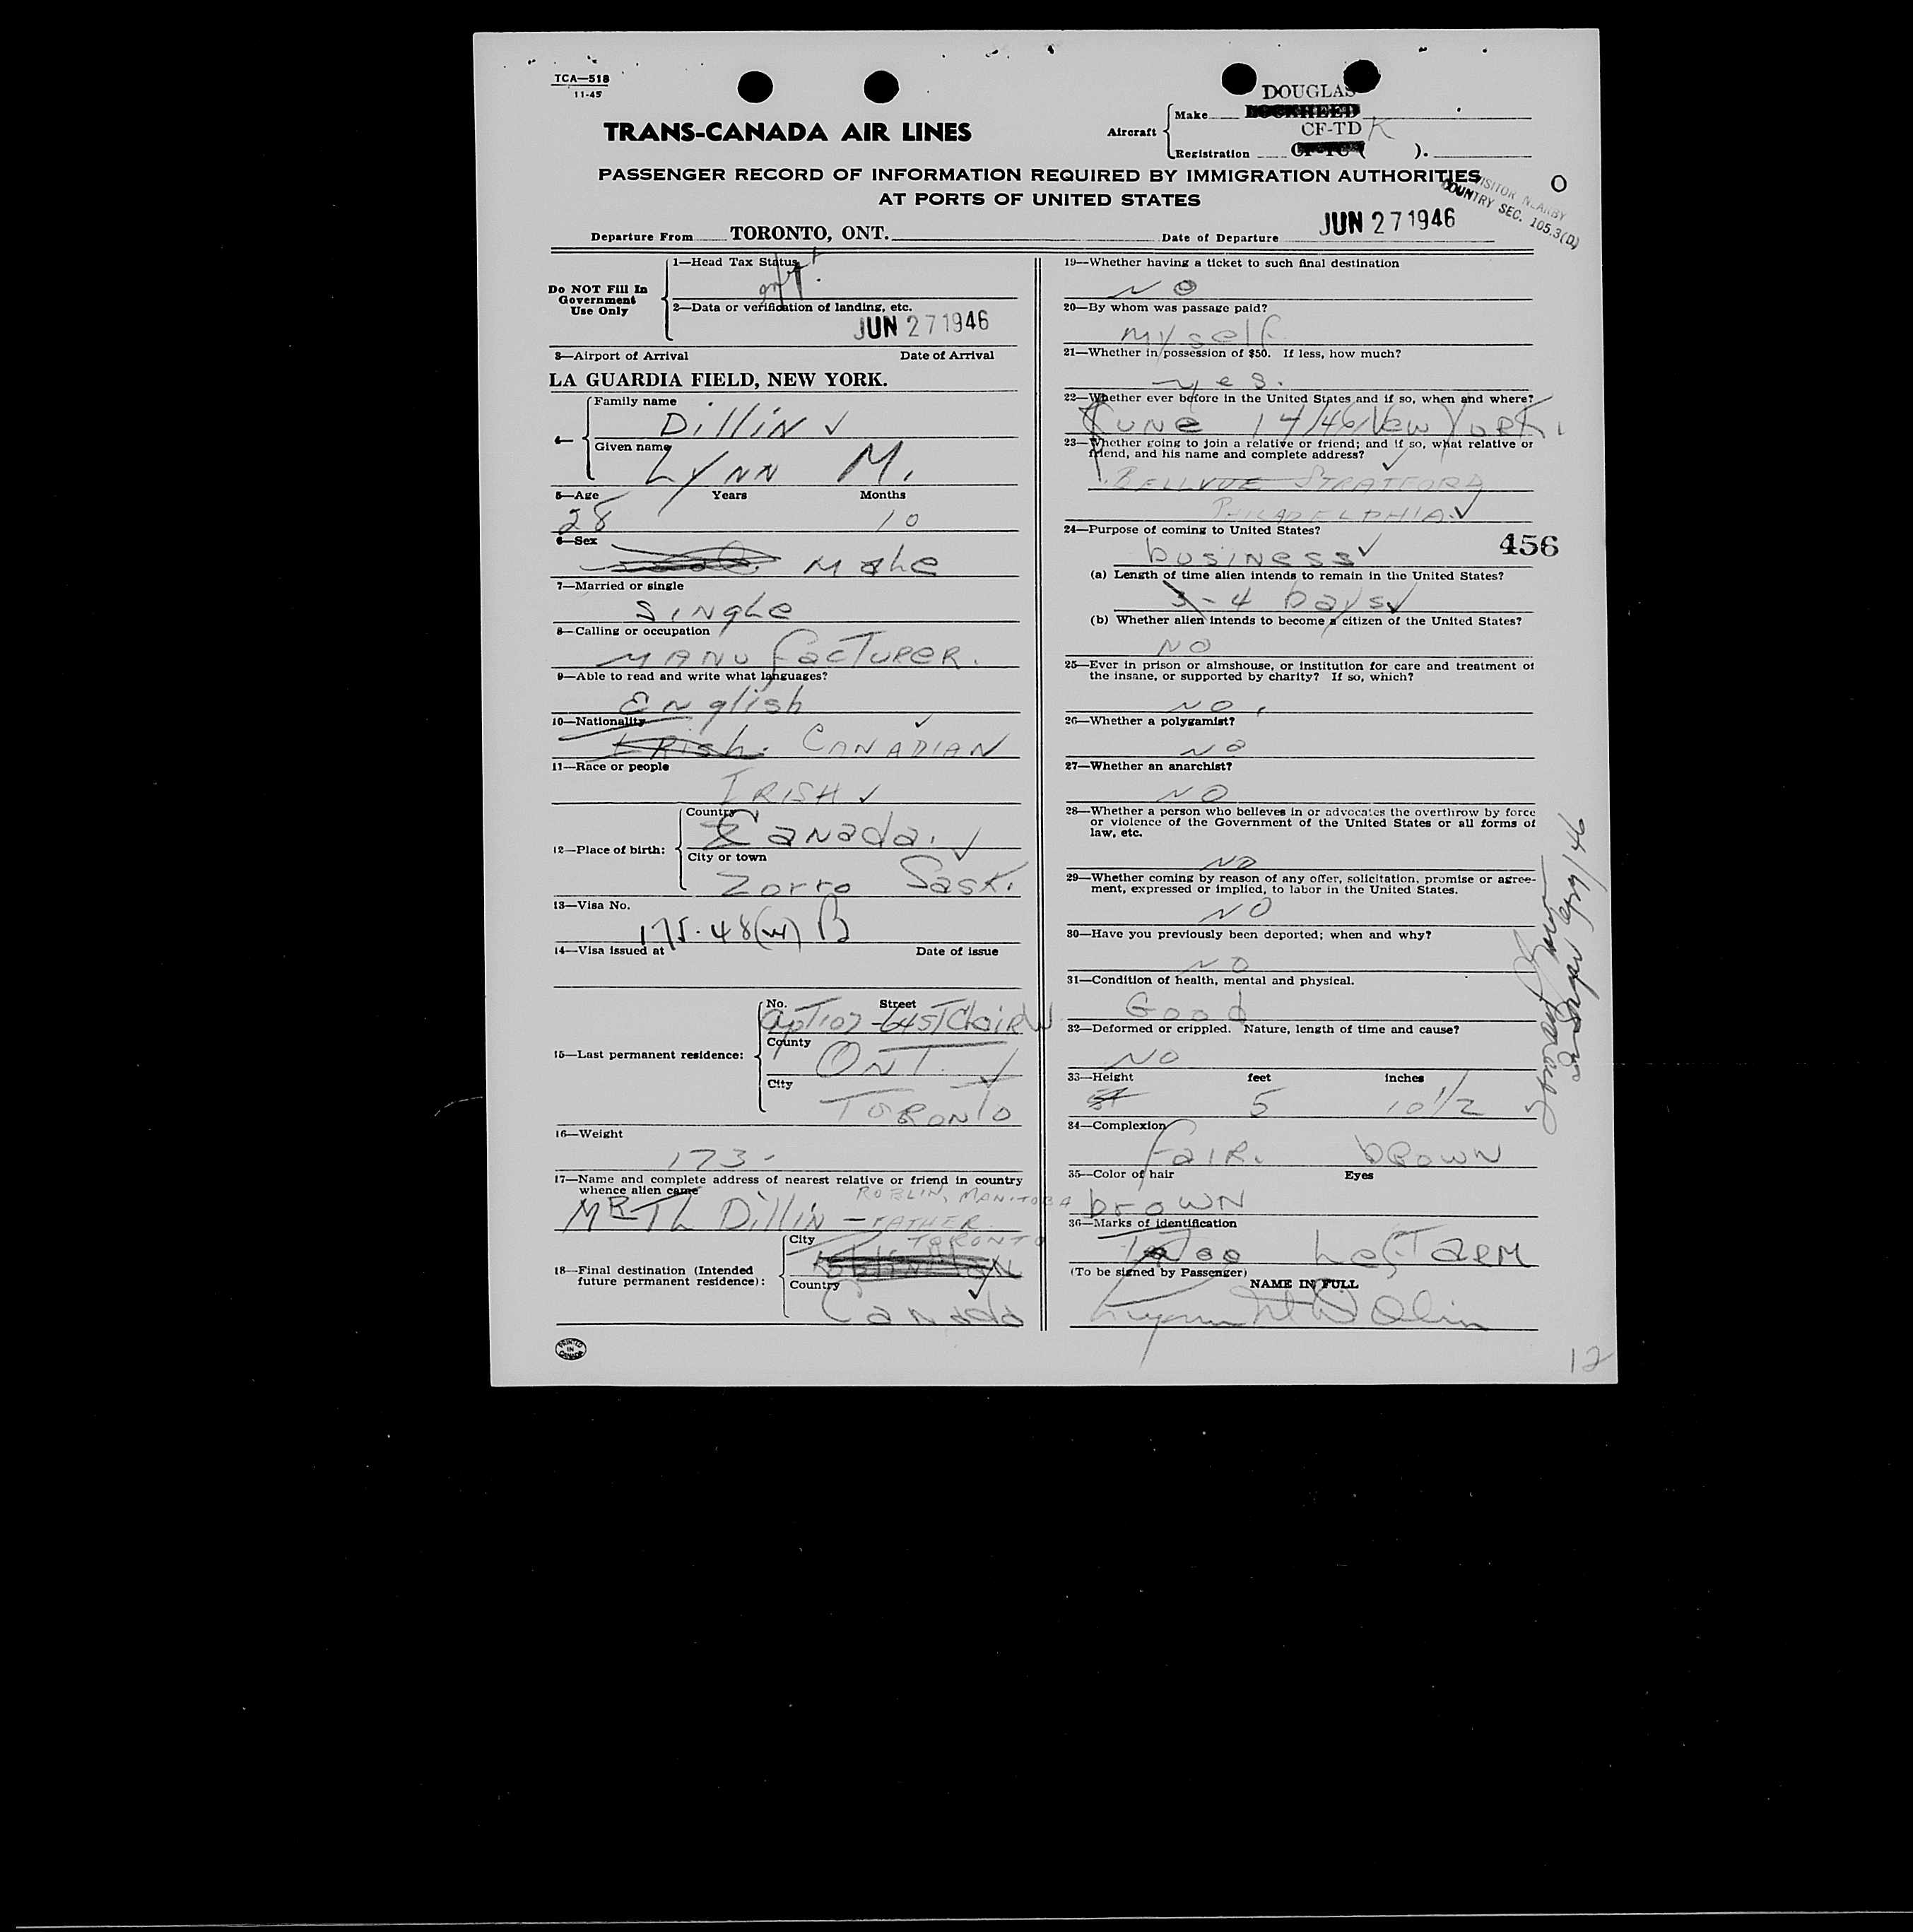 TCA—518
11-45
TRANS-CANADA AIR LINES
Aircraft
Make
DOUGLAS
LOCKHEED
CF-TD K
Registration
CF-TC ( ).
PASSENGER RECORD OF INFORMATION REQUIRED BY IMMIGRATION AUTHORITIES
AT PORTS OF UNITED STATES
O
VISITOR NEARBY
COUNTRY SEC. 105.3(D)
Departure From TORONTO, ONT.
Date of Departure JUN 27 1946
Do NOT Fill In
Government
Use Only
1—Head Tax Status
2—Data or verification of landing, etc.
JUN 27 1946
3—Airport of Arrival Date of Arrival
LA GUARDIA FIELD, NEW YORK.
4—
Family name
Dillin ✓
Given name
Lynn M.
5—Age Years Months
28 10
6—Sex
Male
7—Married or single
Single
8—Calling or occupation
Manufacturer.
9—Able to read and write what languages?
English
10—Nationality
Irish. CANADIAN
11—Race or people
IRISH ✓
12—Place of birth:
Country
Canada. ✓
City or town
Zorro Sask.
13—Visa No.
175.48(w) B
14—Visa issued at Date of issue
15—Last permanent residence:
No. Street
apT107-64 STClair W
County
ONT. ✓
City
TORONTO
16—Weight
173-
17—Name and complete address of nearest relative or friend in country
whence alien came
ROBLIN, MANITOBA
MR TL Dillin — FATHER
18—Final destination (Intended
future permanent residence):
City
TORONTO
Country
Canada
PRINTED
IN
CANADA
19—Whether having a ticket to such final destination
NO
20—By whom was passage paid?
myself
21—Whether in possession of $50. If less, how much?
yes.
22—Whether ever before in the United States and if so, when and where?
June 14/46 New York.
23—Whether going to join a relative or friend; and if so, what relative or
friend, and his name and complete address?
BELLVUE STRATFORD
PHILADELPHIA. ✓
24—Purpose of coming to United States?
business ✓
456
(a) Length of time alien intends to remain in the United States?
3-4 Days ✓
(b) Whether alien intends to become a citizen of the United States?
NO
25—Ever in prison or almshouse, or institution for care and treatment of
the insane, or supported by charity? If so, which?
NO.
26—Whether a polygamist?
NO
27—Whether an anarchist?
NO
28—Whether a person who believes in or advocates the overthrow by force
or violence of the Government of the United States or all forms of
law, etc.
NO
29—Whether coming by reason of any offer, solicitation, promise or agree-
ment, expressed or implied, to labor in the United States.
NO
30—Have you previously been deported; when and why?
NO
31—Condition of health, mental and physical.
Good
32—Deformed or crippled. Nature, length of time and cause?
NO
33—Height feet inches
5 10 1/2
34—Complexion
Fair. brown
35—Color of hair Eyes
brown
36—Marks of identification
LefT arm
(To be signed by Passenger)
NAME IN FULL
12